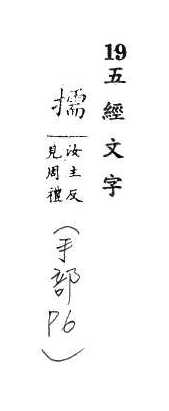 19五經文字
擩
汝主反
見周禮
(手部
P6)